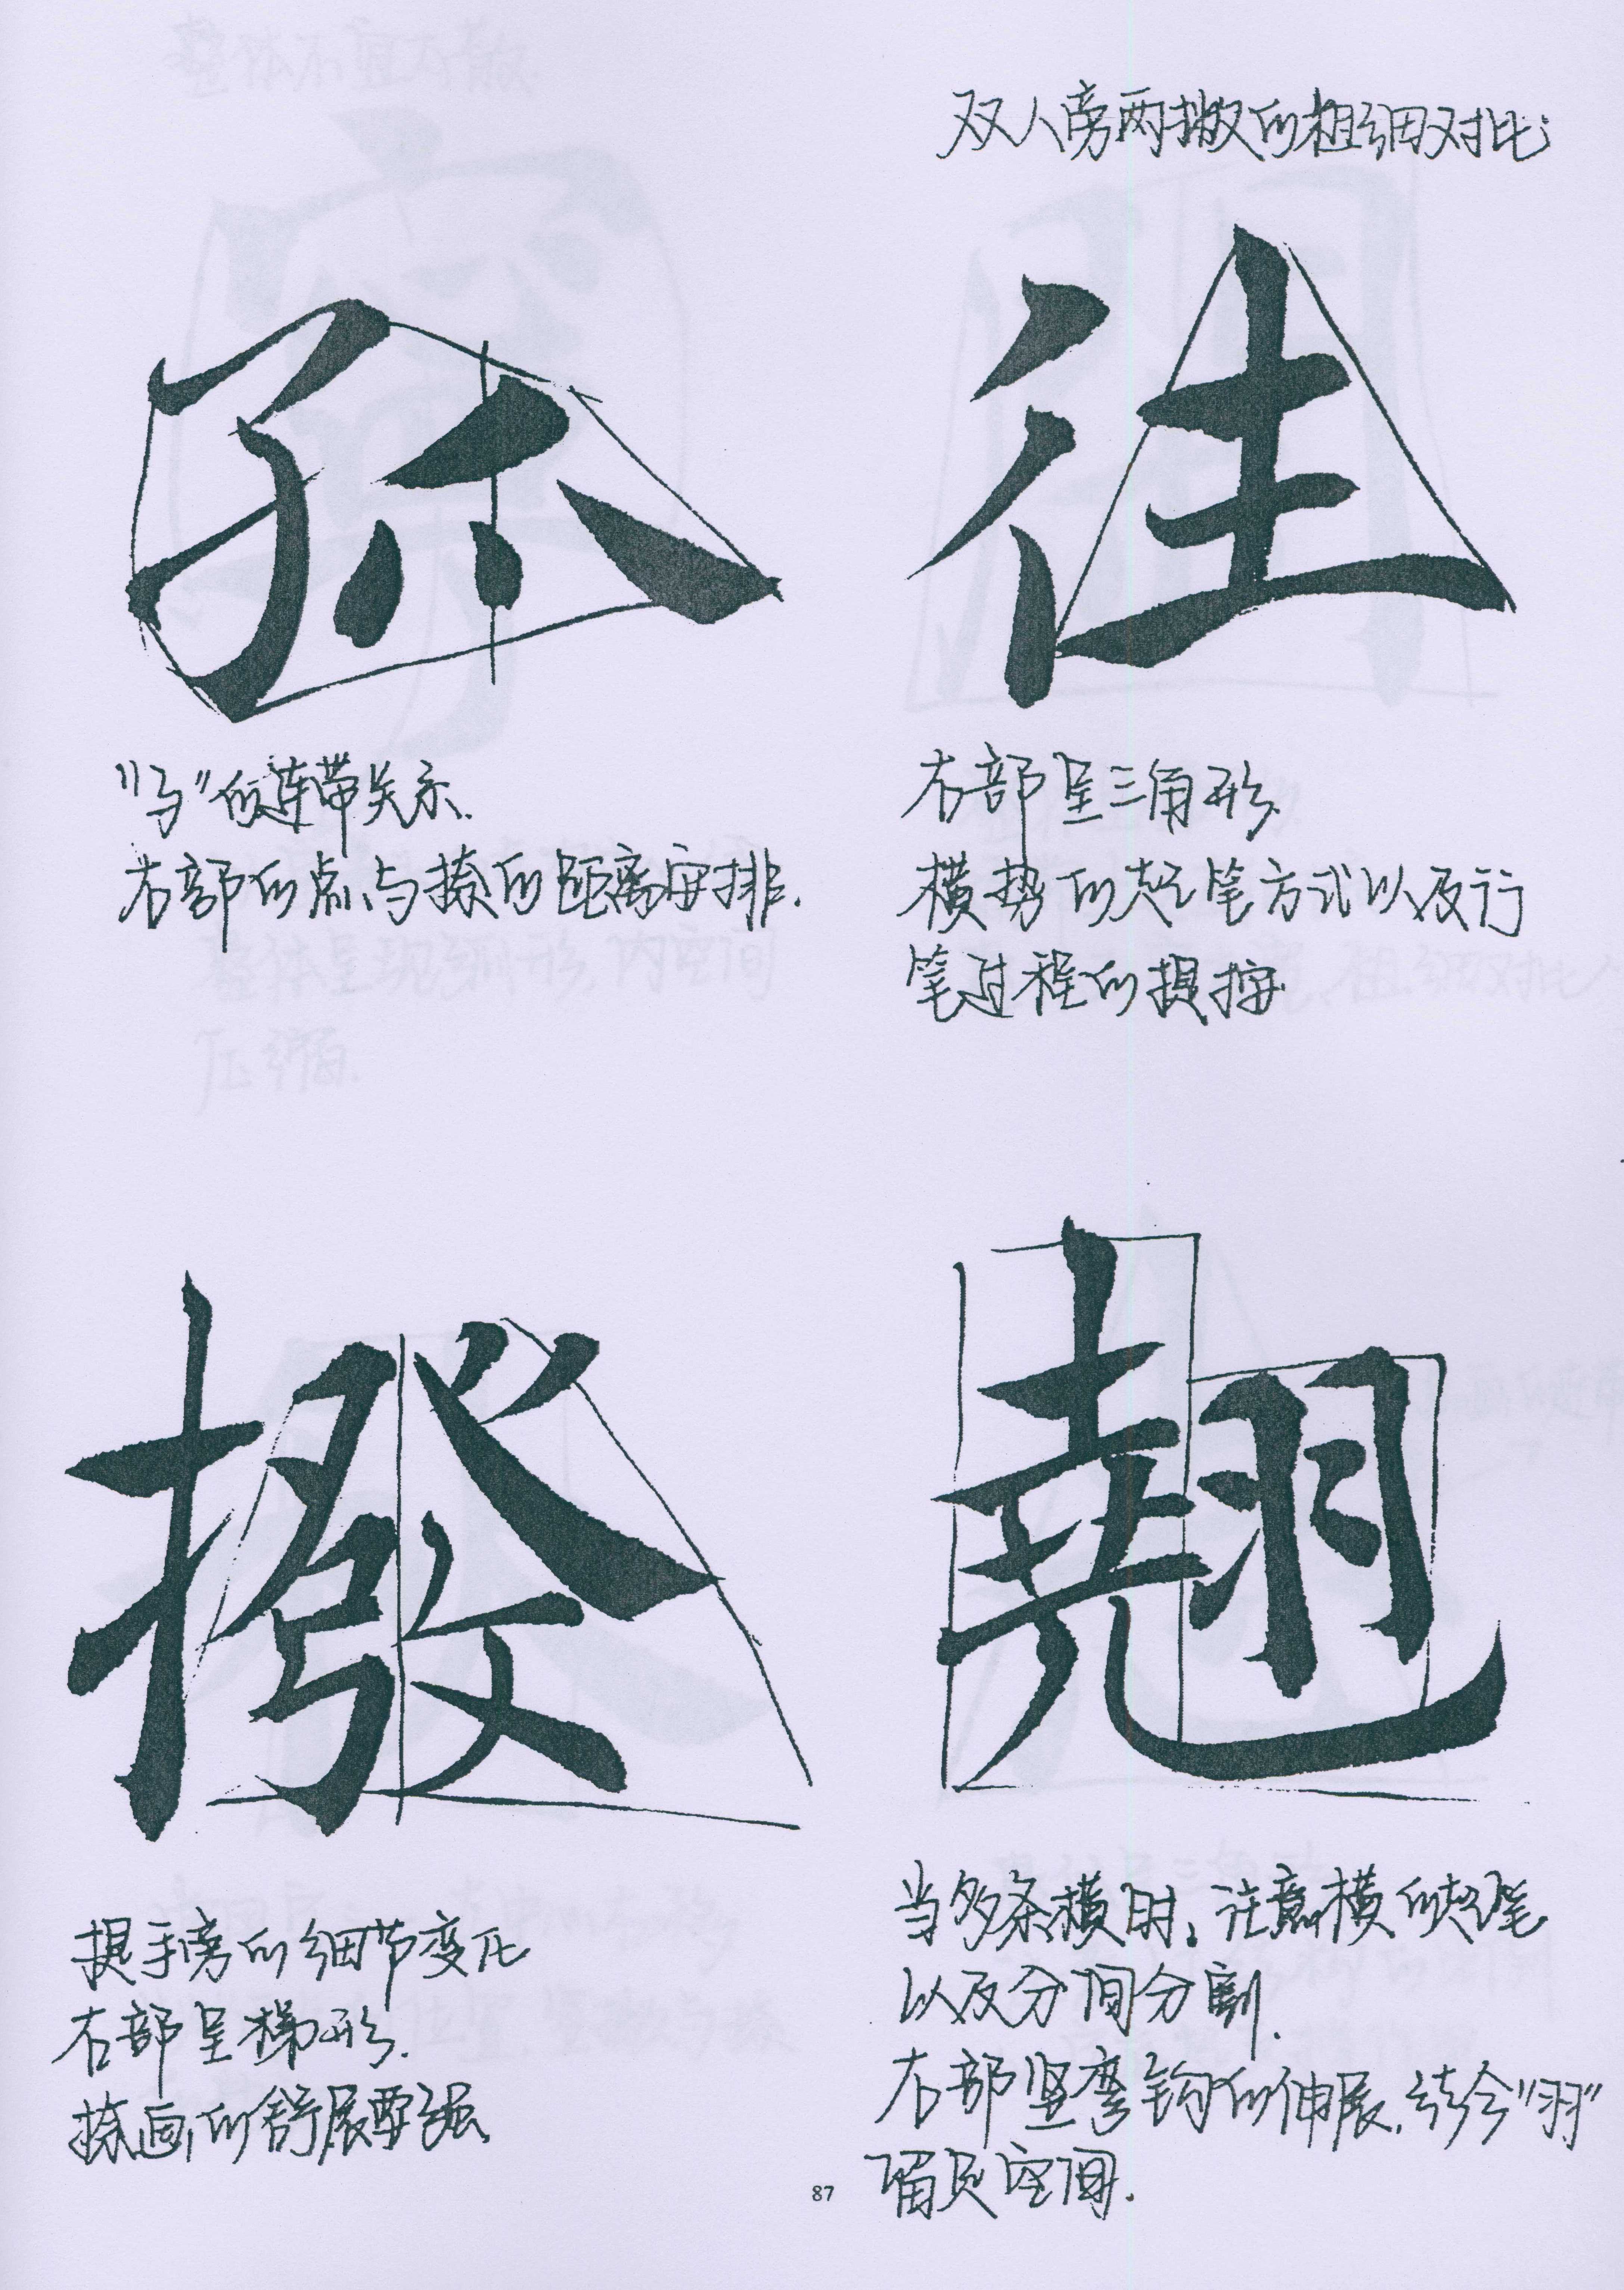 双人旁两撇的粗细对比
往
"子"的连带关系.
右部的点与捺的距离安排.
右部呈三角形.
横势的起笔方式以及行
笔过程的提按.
撥
翹
提手旁的细节变化
右部呈梯形.
捺画的舒展要强.
当多条横时,注意横的起笔
以及分间分割.
右部竖弯钩的伸展,符合"羽"
留足空间.
87